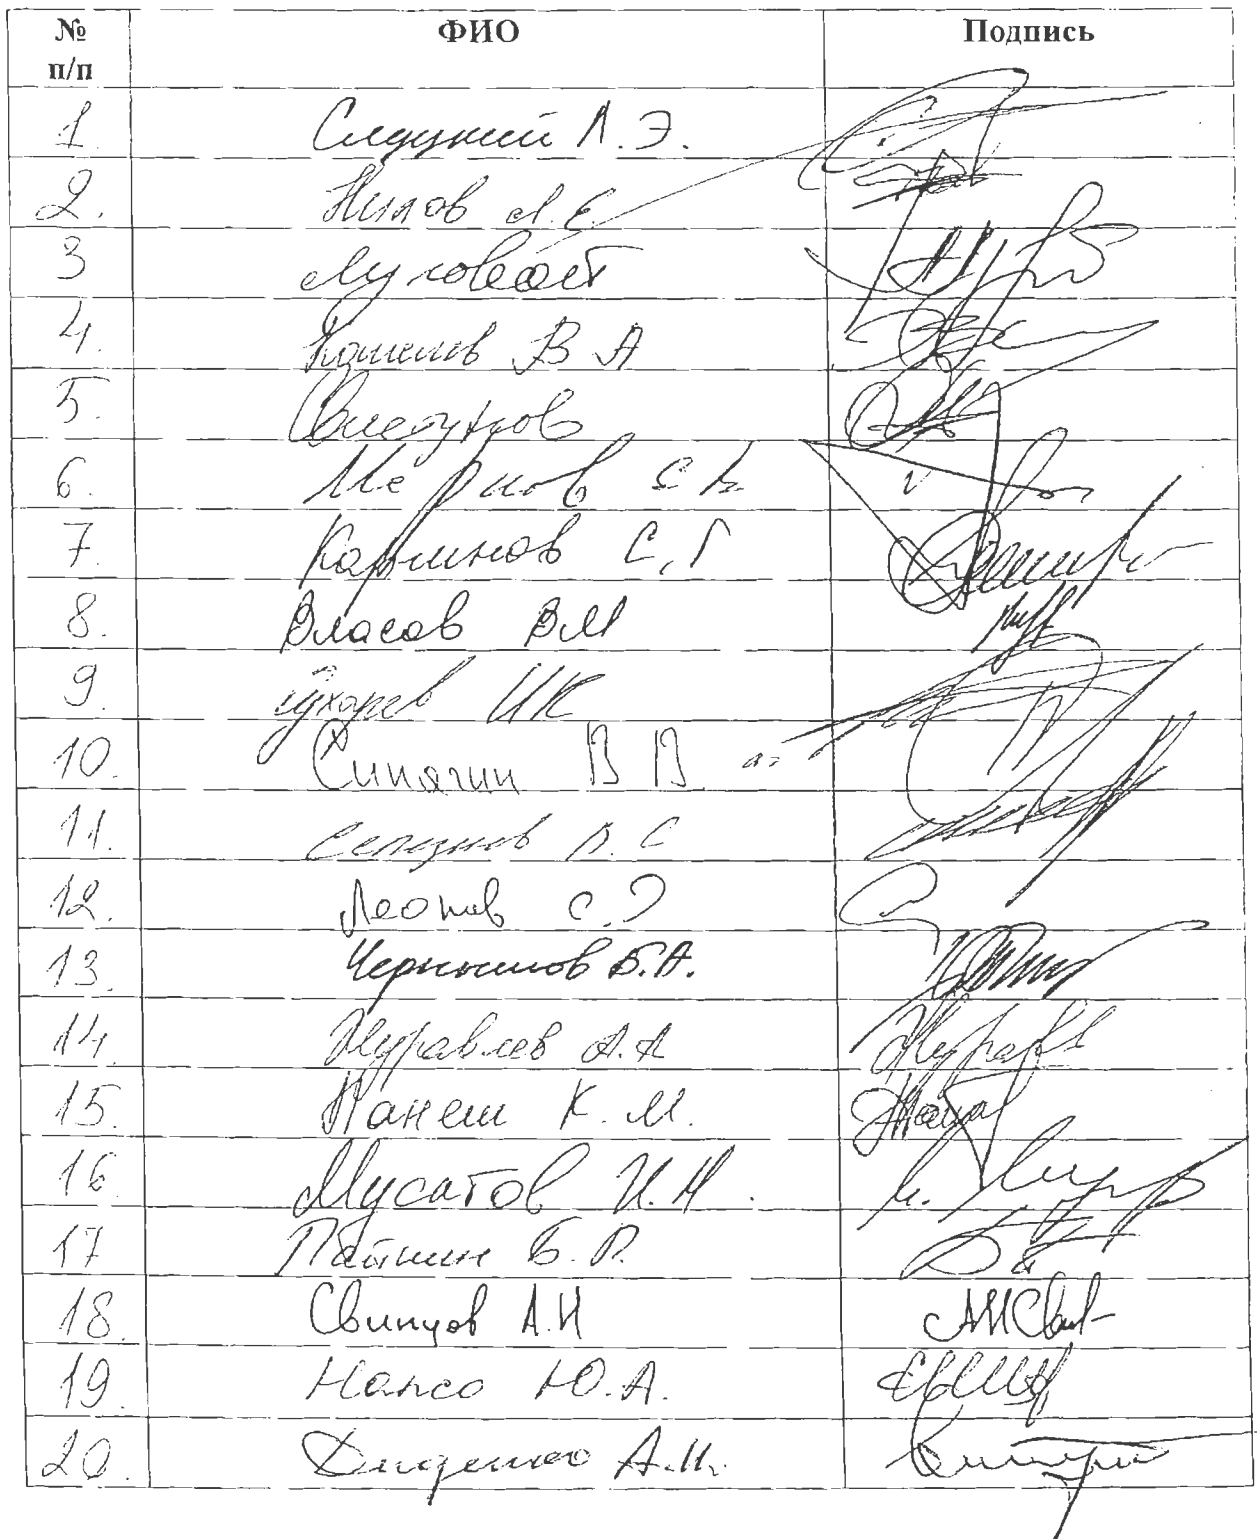 № п/п ФИО Подпись
1 Слуцкий Л.Э.
2. Нилов О.Е.
3 Луговой
4. Кошелев В А
5. Свистунов
6. С В
7. Каргинов С.Г
8. Власов ВМ
9. Сухарев ИК
10. Синягин В В
11. Селезнев В. С
12. Леонов С.Д
13. Чернышов Б.А.
14. Журавлев А.А
15. Панеш К.М.
16 Мусатов И.М.
17 Пайкин Б.Р.
18. Свинцов А.Н АНСвин
19. Напсо Ю.А.
20. Диденко А.Н.